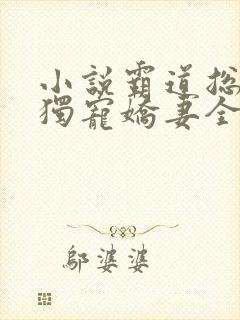 小說霸道总
獨寵嬌妻全
鄔婆婆